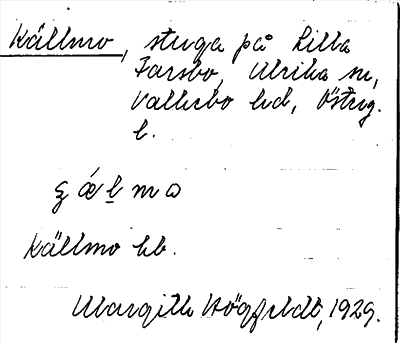 Källmo, stuga på Lilla
Farsbo, Ulrika sn,
Vallebo hd, Östrg.
l.
Källmo hb.
Margith Högfeldt, 1929.